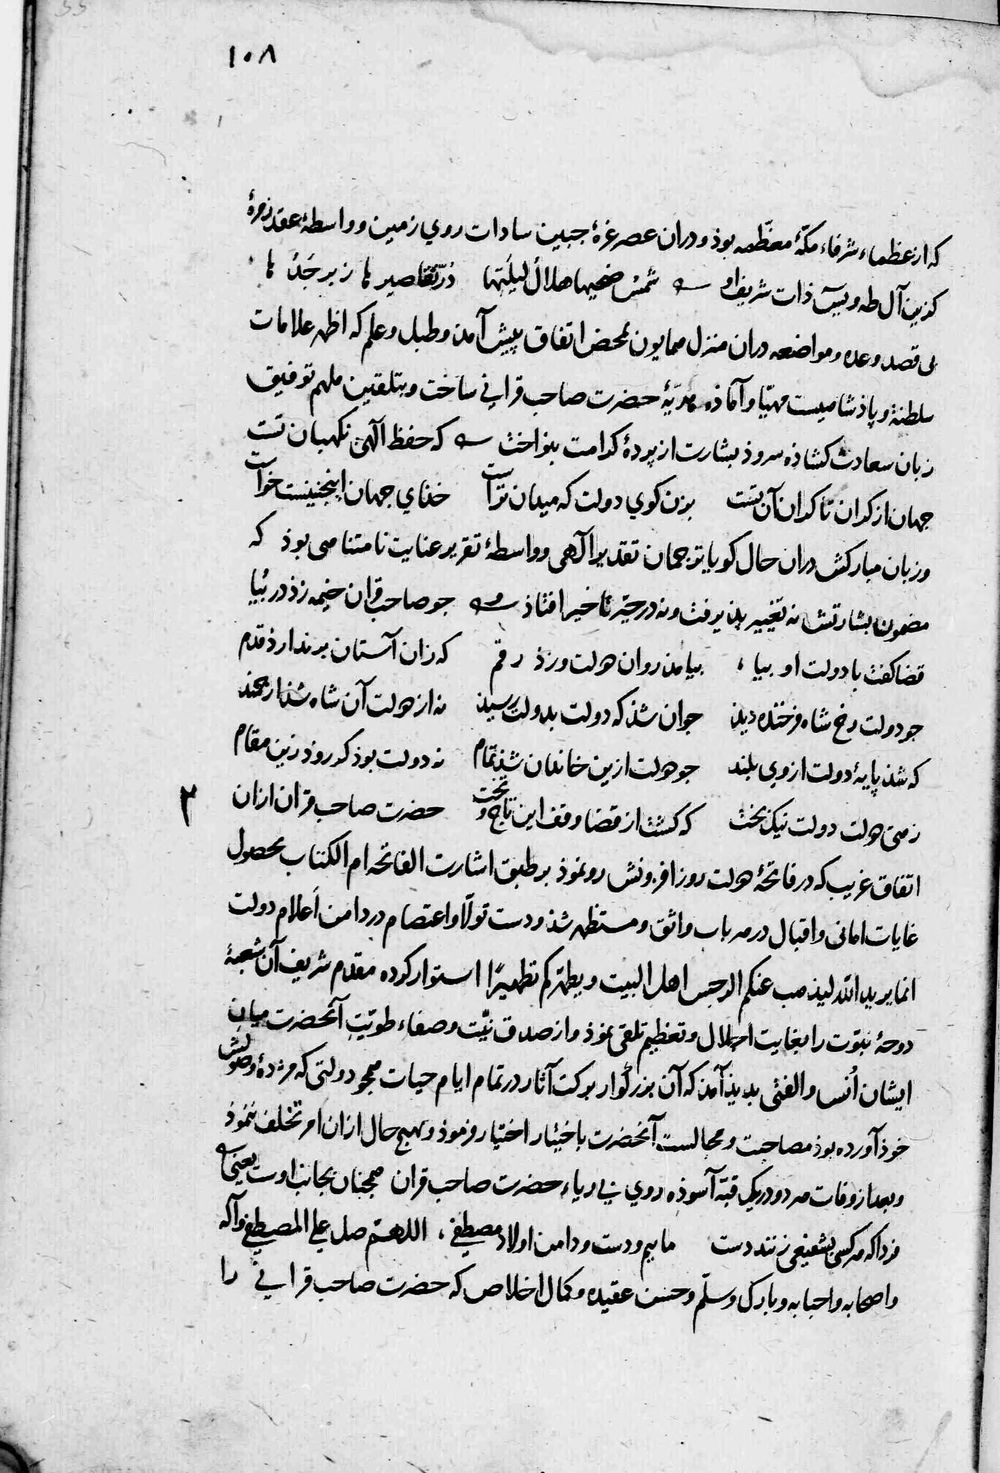 ١٠٨
که از عظماء شرفاء مکّهٔ معظّمه بوذ و دران عصر غرهٔ جبین سادات روی زمین و واسطهٔ عقد زمرهٔ
کزین آل طه و یس ذات شریف او شمس ضحیها هلال لیلتها درّ تقاصیرها زبرجدها
بی قصد وعده و مواضعه دران منزل همایون بمحض اتفاق پیش آمذ و طبل و علم که اظهر علامات
سلطنة و پاذشاهیست مهیّا و آماذه هدیّهٔ حضرت صاحب قرانی ساخت و بتلقین ملهم توفیق
زبان سعادت کشاذه سروذ بشارت از پردهٔ کرامت بنواخت که حفظ الهی نکهبان تست
جهان از کران تا کران آن تست بزن کوی دولت که میدان تراست خذای جهان اینچنینست خواست
و زبان مبارکش دران حال کویا ترجمان تقدیر الهی و واسطهٔ تقریر عنایت نامتناهی بوذ که
مضمون بشارتش نه تغییر پذیرفت و نه در حیّز تاخیر افتاذ جو صاحب قران خیمه زذ در
قضا کفت با دولت او بیا بیامذ روان دولت ورذ رقم که زان آستان بر ندارذ قدم
جو دولت رخ شاه فرخنده دیذ جوان شذ که دولت بدولت رسیذ نه از دولت آن شاه شذ ارجمند
که شذ پایهٔ دولت از وی بلند جو دولت ازین خاندان شذ تمام نه دولت بوذ کو روذ زین مقام
زهی دولت دولت نیک بخت که کشت از قضا وقف این تاج و تخت حضرت صاحب قران ازان
٢
اتفاق غریب که در فاتحهٔ دولت روز افزونش رو نموذ بر طبق اشارت الفاتحه ام الکتاب بحصول
غایات امانی و اقبال در هر باب واثق و مستظهر شذ و دست تولّا و اعتصام در دامن اَعلام دولت
انما یرید الله لیذهب عنکم الرجس اهل البیت و یطهّرکم تطهیرًا استوار کرده مقدم شریف آن شعبهٔ
دوحهٔ نبوّت را بغایت اجلال و تعظیم تلقی نموذ و از صدق نیّت و صفاء طویّت آنحضرت میان
ایشان اُنس و الفتی بدیذ آمذ که آن بزرکوار برکت آثار در تمام ایام حیات همجو دولتی که مژدهٔ وصولش
خوذ آورده بوذ مصاحبت و مجالست آنحضرت باختیار اختیار فرموذ و بهیج حال ازان امر تخلف ننموذ
و بعد از وفات هر دو در یک قبّه آسوذه روی بی ریاء حضرت صاحب قران همجنان بجانب اوست یعنی
فردا که هر کسی بشفیعی زنند دست ماییم و دست و دامن اولاد مصطفی، اللهمّ صل علی المصطفی و آله
و اصحابه و احبابه و بارک و سلّم و حسن عقیده و کمال اخلاص که حضرت صاحب قرانی را